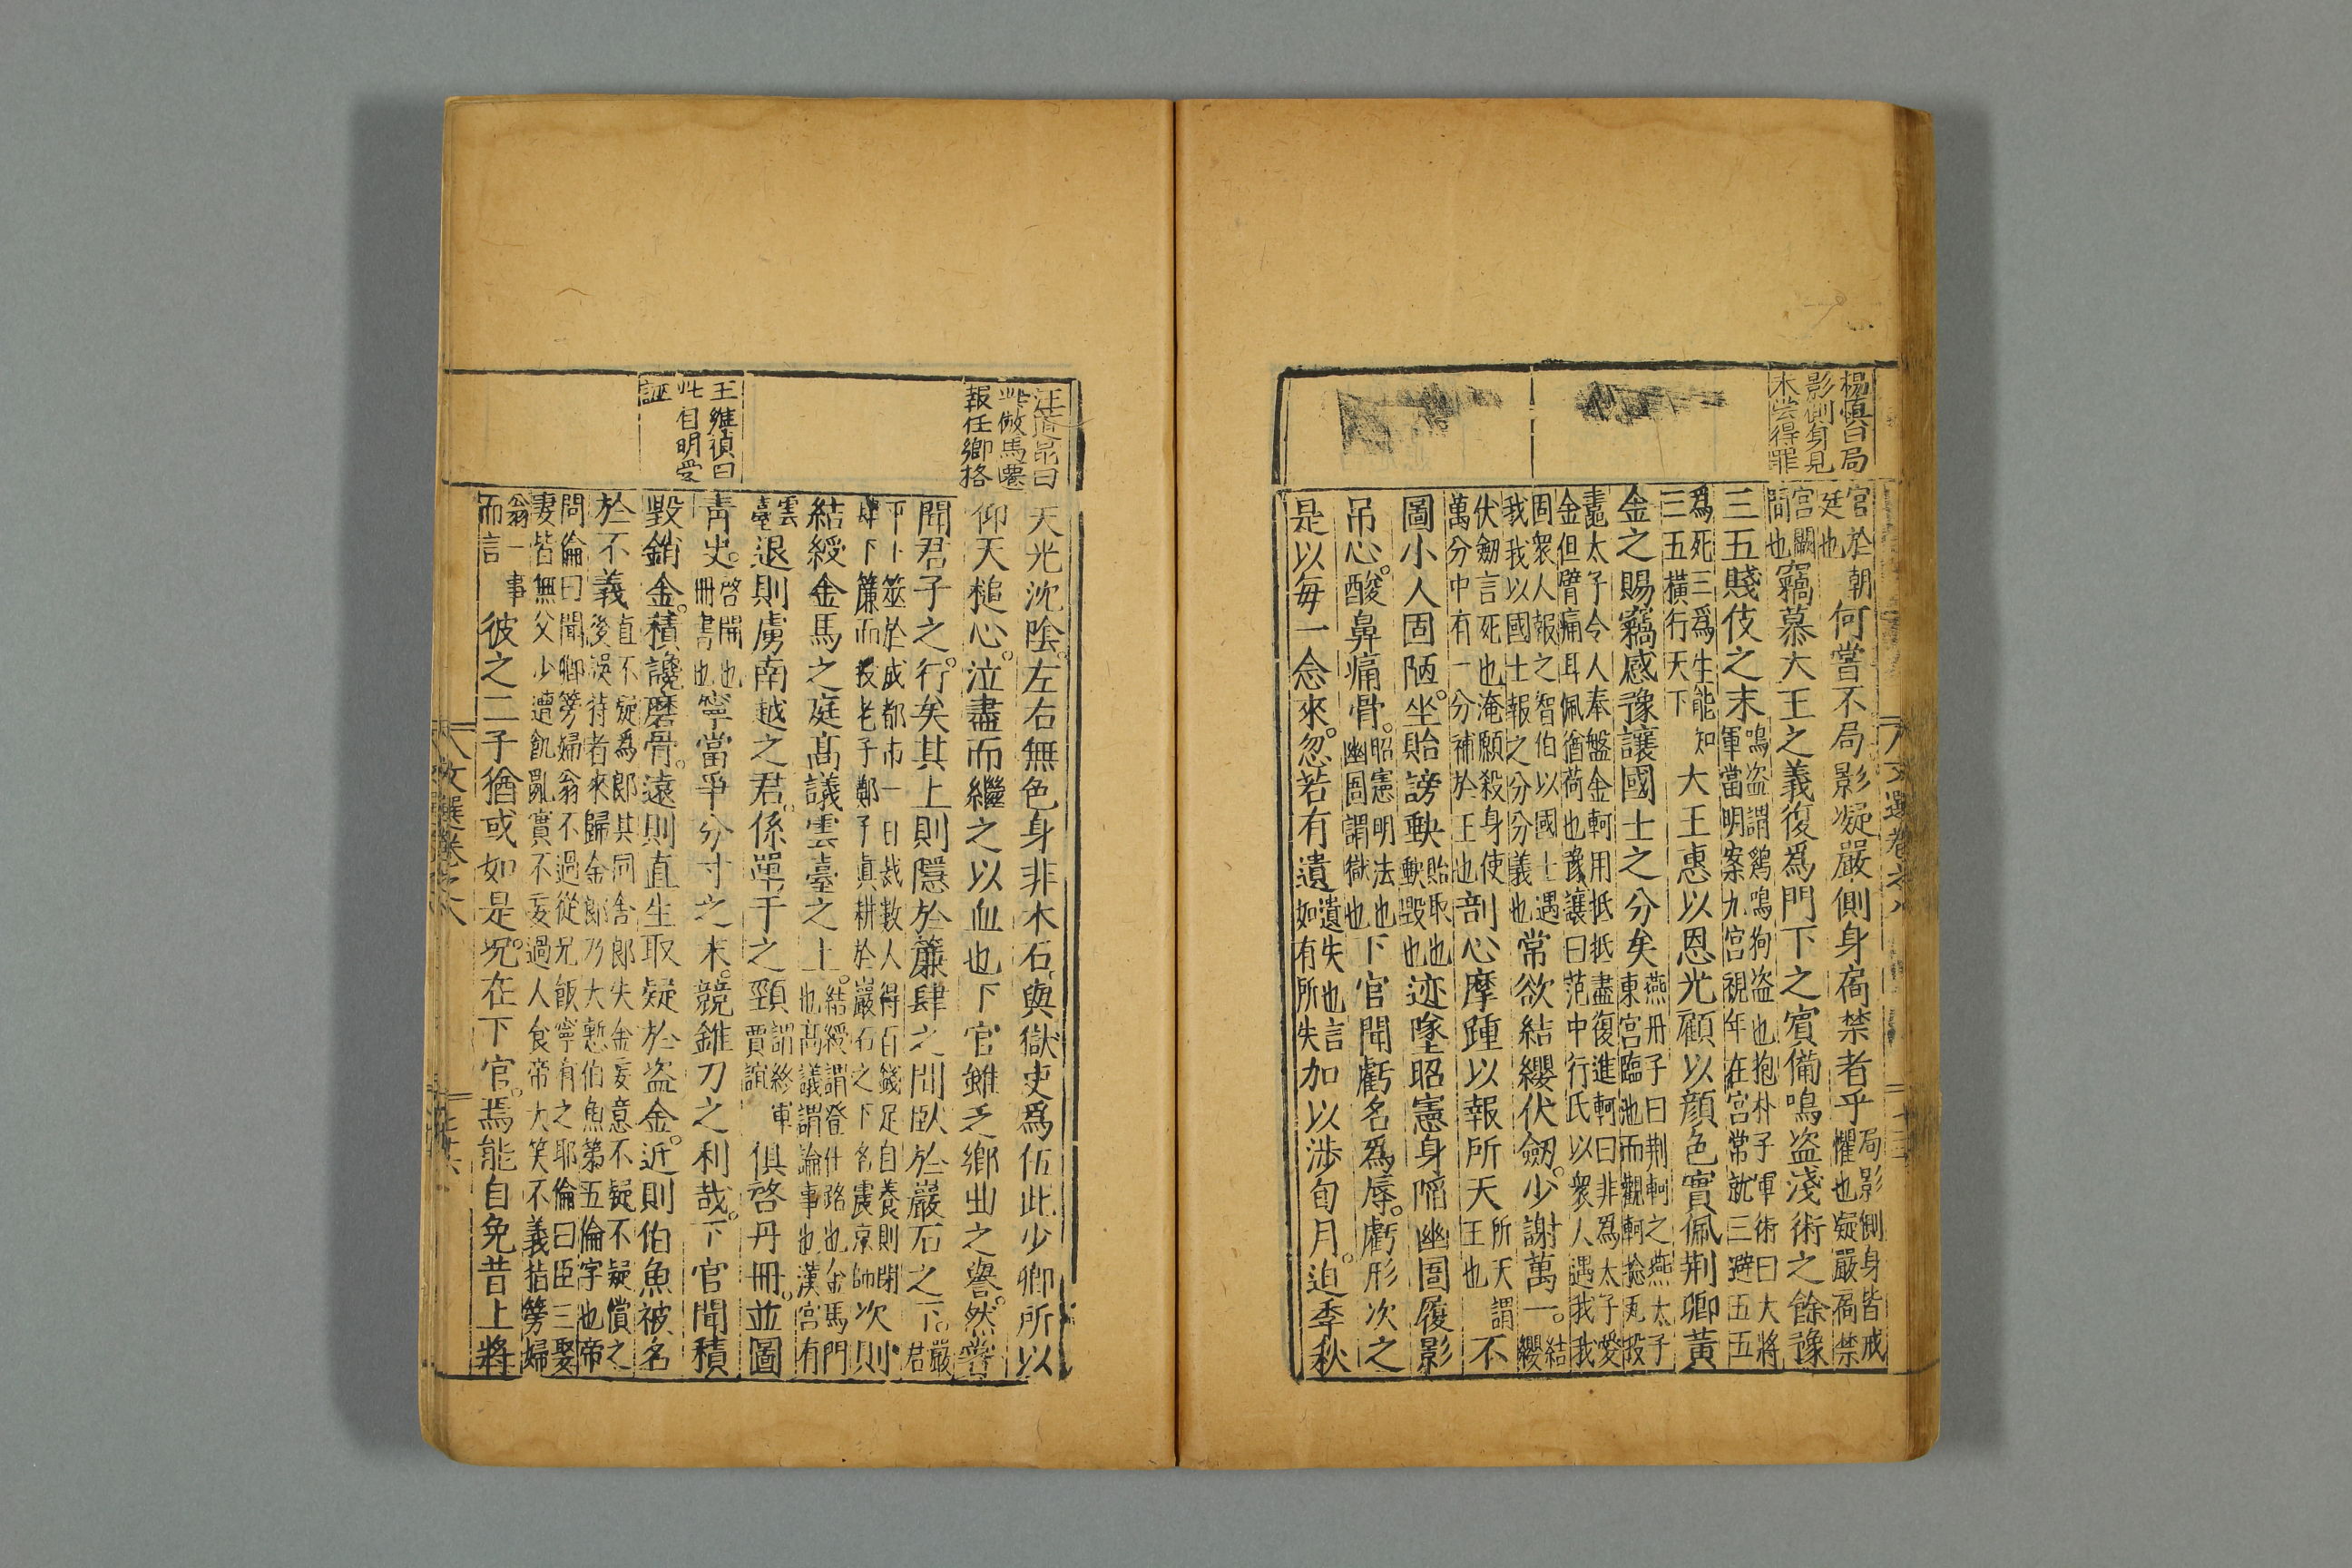 楊慎曰局
影側身見
未嘗得罪
官於朝
廷也
何嘗不局影凝嚴側身扃禁者乎
局影側身皆戒
懼也凝嚴扃禁
宮闕
間也
竊慕大王之義復爲門下之賓備鳴盜淺術之餘豫
三五賤伎之末
鳴盜謂鷄鳴狗盜也抱朴子軍術曰大將
軍當明案九宮視年在宮常就三避五五
爲死三爲生能知
三五橫行天下
大王惠以恩光顧以顏色實佩荆卿黃
金之賜竊感豫讓國士之分矣
燕丹子曰荆軻之燕太子
東宮臨池而觀軻捡瓦投
龜太子令人奉盤金軻用抵抵盡復進軻曰非爲太子愛
金但臂痛耳佩猶荷也豫讓曰范中行氏以衆人遇我我
固衆人報之智伯以國士遇
我我以國士報之分分義也
常欲結纓伏劒少謝萬一
結
纓
伏劒言死也淹願殺身使
萬分中有一分補於王也
剖心摩踵以報所天
所天謂
王也
不
圖小人固陋坐貽謗缺
貽取也
缺毀也
迹墜昭憲身陷幽圄履影
吊心酸鼻痛骨
昭憲明法也
幽圄謂獄也
下官聞虧名爲辱虧形次之
是以每一念來忽若有遺
遺失也言
如有所失
加以涉旬月迫季秋
文選卷之八
汪道昆曰
此倣馬遷
報任卿格
王維禎曰
此自明受
誣
天光沈陰左右無色身非木石與獄吏爲伍此少卿所以
仰天槌心泣盡而繼之以血也下官雖乏鄉曲之譽然嘗
聞君子之行矣其上則隱於簾肆之間臥於巖石之下
嚴
君
平卜筮於成都市一日裁數人得百錢足自養則閉
肆下簾而授老子鄭子眞耕於巖石之下名震京師
次則
結綬金馬之庭高議雲臺之上
結綬謂登仕路也金馬門
也高議謂論事也漢宮有
雲
臺
退則虜南越之君係單于之頸
謂終軍
賈誼
俱啓丹冊並圖
靑史
啓開也
冊書也
寧當爭分寸之末競錐刀之利哉下官聞積
毀銷金積讒磨骨遠則直生取疑於盜金近則伯魚被名
於不義
直不疑爲郎其同舍郎失金妄意不疑不疑償之
後誤待者來歸金郎乃大慙伯魚第五倫字也帝
問倫曰聞卿篣婦翁不過從兄飯寧有之耶倫曰臣三娶
妻皆無父少遭飢亂實不妄過人食帝大笑不義指篣婦
翁一事
而言
彼之二子猶或如是況在下官焉能自免昔上將
文選卷之八